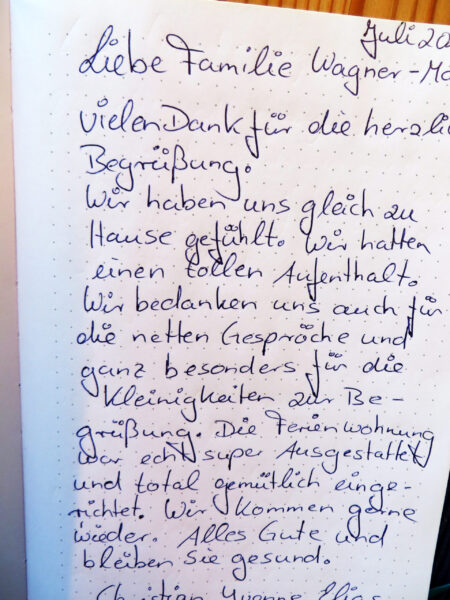 Juli 20
Liebe Familie Wagner-Mo
vielen Dank für die herzli
Begrüßung.
Wir haben uns gleich zu
Hause gefühlt. Wir hatten
einen tollen Aufenthalt.
Wir bedanken uns auch für
die netten Gespräche und
ganz besonders für die
Kleinigkeiten zur Be-
grüßung. Die Ferienwohnung
war echt super Ausgestattet
und total gemütlich einge-
richtet. Wir kommen gerne
wieder. Alles Gute und
bleiben Sie gesund.
Christian Yvonne Elias